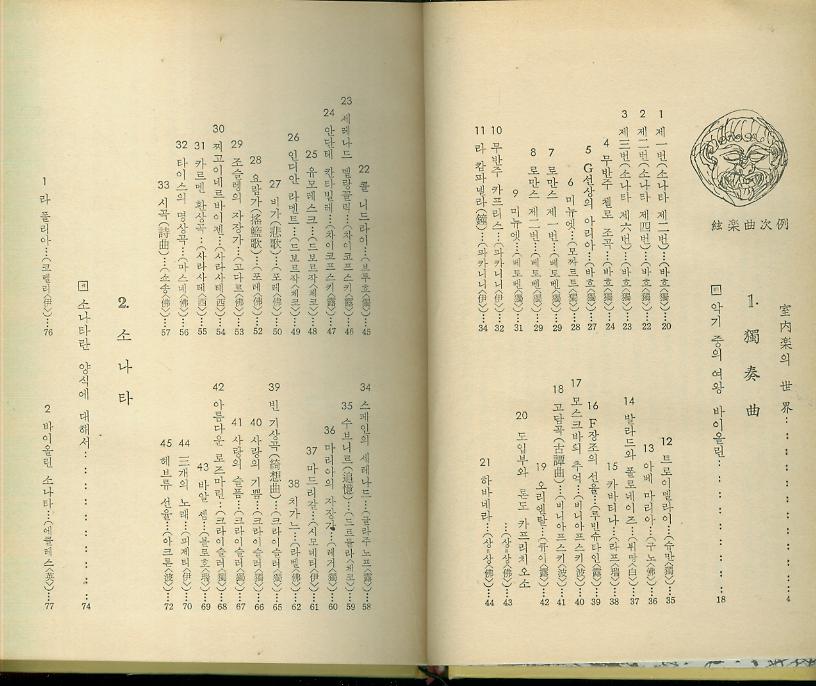 絃楽曲次例
室内楽의 世界 4
1. 獨奏曲
악기 중의 여왕 바이올린 18
1 제一번(소나타 제二번)…(바흐〈獨〉)…20
2 제二번(소나타 제四번)…(바흐〈獨〉)…22
3 제三번(소나타 제六번)…(바흐〈獨〉)…23
4 무반주 첼로 조곡…(바흐〈獨〉)…24
5 G선상의 아리아…(바흐〈獨〉)…27
6 미뉴엣…(모짜르트〈獨〉)…28
7 로만스 제一번…(베토벤〈獨〉)…29
8 로만스 제二번…(베토벤〈獨〉)…29
9 미뉴엣…(베토벤〈獨〉)…31
10 무반주 카프리스…(파가니니〈伊〉)…32
11 라 캄파넬라(鐘)…(파가니니〈伊〉)…34
12 트로이멜라이…(슈만〈獨〉)…35
13 아베 마리아…(구노〈佛〉)…36
14 발라드와 폴로네이즈…(뷔땅〈白〉)…37
15 카바티나…(라프〈瑞〉)…38
16 F장조의 선율…(루빈슈타인〈露〉)…39
17 모스크바의 추억…(비니아프스키〈波〉)…40
18 고담곡(古譚曲)…(비니아프스키〈波〉)…41
19 오리엔탈…(큐이〈露〉)…42
20 도입부와 론도 카프리치오소…(상상〈佛〉)…43
21 하바네라…(상상〈佛〉)…44
22 콜 니드라이…(브루흐〈獨〉)…45
23 세레나드 멜랑꼴릭…(차이코프스키〈露〉)…46
24 안단테 칸타빌레…(차이코프스키〈露〉)…47
25 유모레스크…(드보르작〈체코〉)…48
26 인디안 라멘트…(드보르작〈체코〉)…49
27 비가(悲歌)…(포레〈佛〉)…50
28 요람가(搖籃歌)…(포레〈佛〉)…52
29 조슬렝의 자장가…(고다르〈佛〉)…53
30 찌고이네르바이젠…(사라사테〈西〉)…54
31 카르멘 환상곡…(사라사테〈西〉)…55
32 타이스의 명상곡…(마스네〈佛〉)…56
33 시곡(詩曲)…(쇼송〈佛〉)…57
34 스페인의 세레나드…(글라주노프〈露〉)…58
35 수브니르(追憶)…(드르들라〈체코〉)…59
36 마리아의 자장가…(레거〈獨〉)…60
37 마드리갈…(시모네티〈伊〉)…61
38 치가느…(라벨〈佛〉)…62
39 빈 기상곡(綺想曲)…(크라이슬러〈獨〉)…65
40 사랑의 기쁨…(크라이슬러〈獨〉)…66
41 사랑의 슬픔…(크라이슬러〈獨〉)…67
42 아름다운 로즈마린…(크라이슬러〈獨〉)…68
43 바알 셈…(블로흐〈瑞〉)…69
44 三개의 노래…(피제티〈伊〉)…70
45 헤브류 선율…(아크론〈波〉)…72
2. 소나타
소나타란 양식에 대해서 74
1 라 폴리아…(코렐리〈伊〉)…76
2 바이올린 소나타…(에클레스〈英〉)…77